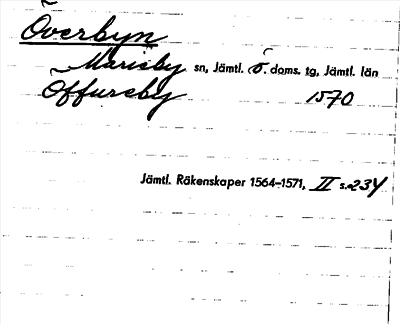 Överbyn
Marieby sn, Jämtl. ö. doms. tg, Jämtl. län
Öffureby 1570
Jämtl. Räkenskaper 1564-1571, II s. 234